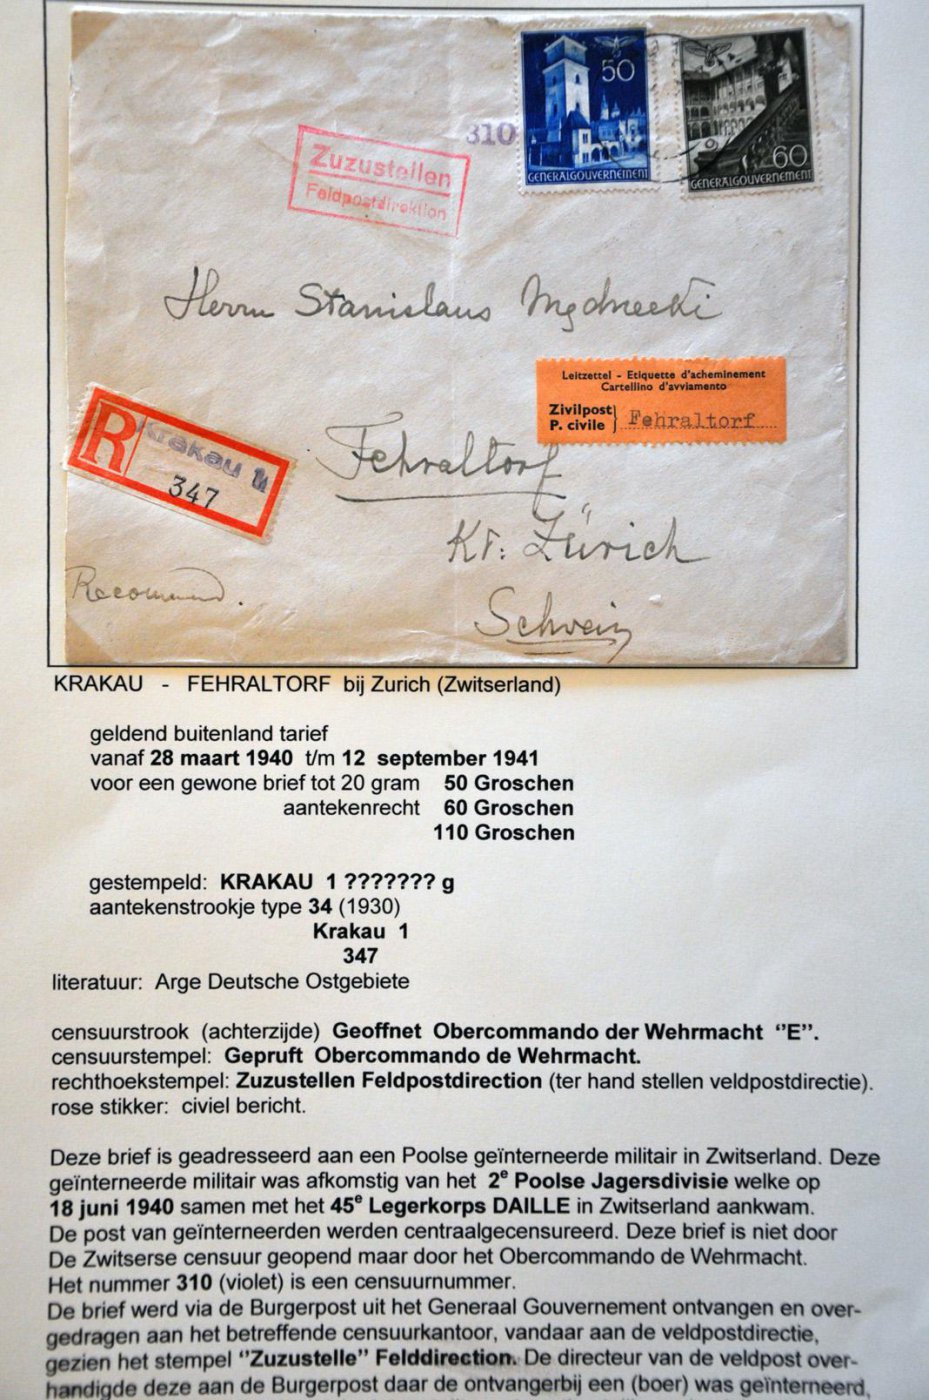 50
GENERALGOUVERNEMENT
60
GENERALGOUVERNEMENT
310
Zuzustellen
Feldpostdirektion
Herrn Stanislaus
Leitzettel - Etiquette d'acheminement
Cartellino d'avviamento
Zivilpost
P. civile } Fehraltorf
R Krakau 1
347
Fehraltorf
Kt: Zürich
Schweiz
Recommand.
KRAKAU - FEHRALTORF bij Zurich (Zwitserland)
geldend buitenland tarief
vanaf 28 maart 1940 t/m 12 september 1941
voor een gewone brief tot 20 gram 50 Groschen
aantekenrecht 60 Groschen
110 Groschen
gestempeld: KRAKAU 1 ??????? g
aantekenstrookje type 34 (1930)
Krakau 1
347
literatuur: Arge Deutsche Ostgebiete
censuurstrook (achterzijde) Geoffnet Obercommando der Wehrmacht ‘’E’’.
censuurstempel: Gepruft Obercommando de Wehrmacht.
rechthoekstempel: Zuzustellen Feldpostdirection (ter hand stellen veldpostdirectie).
rose stikker: civiel bericht.
Deze brief is geadresseerd aan een Poolse geïnterneerde militair in Zwitserland. Deze
geïnterneerde militair was afkomstig van het 2e Poolse Jagersdivisie welke op
18 juni 1940 samen met het 45e Legerkorps DAILLE in Zwitserland aankwam.
De post van geïnterneerden werden centraalgecensureerd. Deze brief is niet door
De Zwitserse censuur geopend maar door het Obercommando de Wehrmacht.
Het nummer 310 (violet) is een censuurnummer.
De brief werd via de Burgerpost uit het Generaal Gouvernement ontvangen en over-
gedragen aan het betreffende censuurkantoor, vandaar aan de veldpostdirectie,
gezien het stempel ‘’Zuzustelle’’ Felddirection. De directeur van de veldpost over-
handigde deze aan de Burgerpost daar de ontvangerbij een (boer) was geïnterneerd,